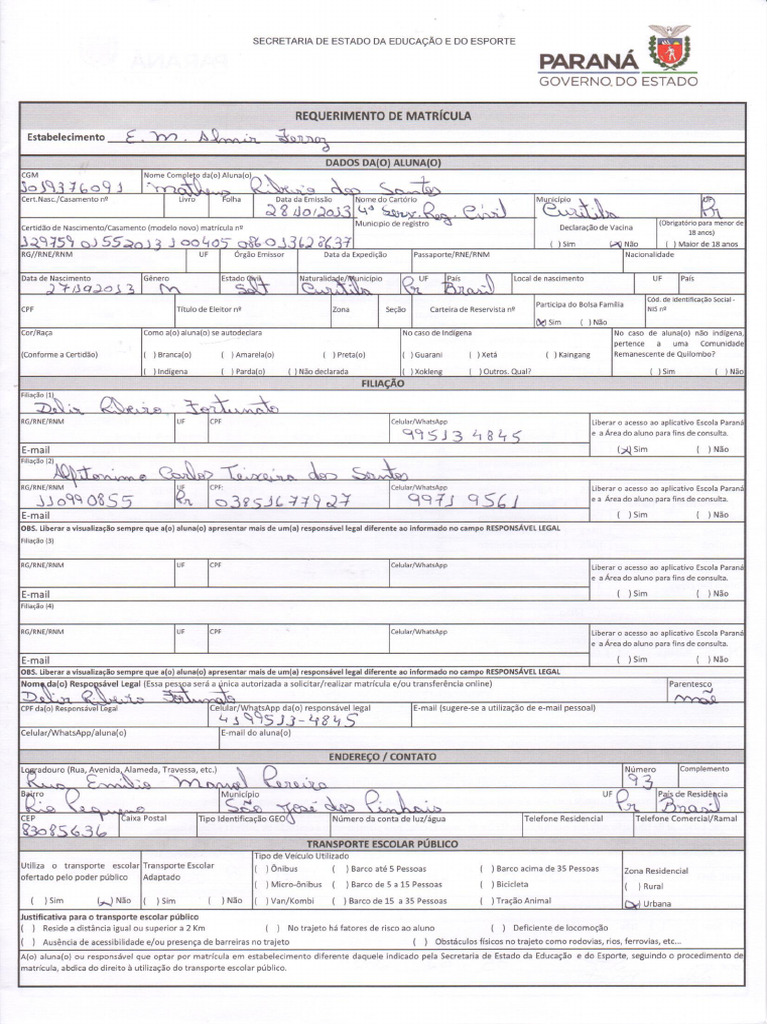 SECRETARIA DE ESTADO DA EDUCAÇÃO E DO ESPORTE
PARANÁ
GOVERNO DO ESTADO
REQUERIMENTO DE MATRÍCULA
Estabelecimento E. M. Almir Ferraz
DADOS DA(O) ALUNA(O)
CGM Nome Completo da(o) Aluna(o)
1019376091 Matheus Ribeiro dos Santos
Cert.Nasc./Casamento nº Livro Folha Data da Emissão Nome do Cartório Município UF
28/10/2013 4º Serv. Reg. Civil Curitiba Pr
Certidão de Nascimento/Casamento (modelo novo) matrícula nº Municipio de registro Declaração de Vacina (Obrigatório para menor de 18 anos)
129759 01552013 1 00405 086013628637 ( ) Sim (x) Não ( ) Maior de 18 anos
RG//RNE/RNM UF Órgão Emissor Data da Expedição Passaporte/RNE/RNM Nacionalidade
Data de Nascimento Gênero Estado Civil Naturalidade/Município UF País Local de nascimento UF País
M Solt Curitiba Pr Brasil
CPF Título de Eleitor nº Zona Seção Carteira de Reservista nº Participa do Bolsa Família Cód. de Identificação Social - NIS nº
(x) Sim ( ) Não
Cor/Raça Como a(o) aluna(o) se autodeclara No caso de Indígena No caso de aluna(o) não indígena, pertence a uma Comunidade Remanescente de Quilombo?
(Conforme a Certidão) ( ) Branca(o) ( ) Amarela(o) ( ) Preta(o) ( ) Guarani ( ) Xetá ( ) Kaingang
( ) Indígena ( ) Parda(o) ( ) Não declarada ( ) Xokleng ( ) Outros. Qual? ( ) Sim ( ) Não
FILIAÇÃO
Filiação (1)
Delir Ribeiro Fortunato
RG/RNE/RNM UF CPF Celular/WhatsApp Liberar o acesso ao aplicativo Escola Paraná e a Área do aluno para fins de consulta.
99513 4845
E-mail (x) Sim ( ) Não
Filiação (2)
Carlos Teixeira dos Santos
RG/RNE/RNM UF CPF: Celular/WhatsApp Liberar o acesso ao aplicativo Escola Paraná e a Área do aluno para fins de consulta.
110990855 Pr 03851677927 9971 9561
E-mail ( ) Sim ( ) Não
OBS. Liberar a visualização sempre que a(o) aluna(o) apresentar mais de um(a) responsável legal diferente ao informado no campo RESPONSÁVEL LEGAL
Filiação (3)
RG/RNE/RNM UF CPF Celular/WhatsApp Liberar o acesso ao aplicativo Escola Paraná e a Área do aluno para fins de consulta.
E-mail ( ) Sim ( ) Não
Filiação (4)
RG/RNE/RNM UF CPF Celular/WhatsApp Liberar o acesso ao aplicativo Escola Paraná e a Área do aluno para fins de consulta.
E-mail ( ) Sim ( ) Não
OBS. Liberar a visualização sempre que a(o) aluna(o) apresentar mais de um(a) responsável legal diferente ao informado no campo RESPONSÁVEL LEGAL
Nome da(o) Responsável Legal (Essa pessoa será a única autorizada a solicitar/realizar matrícula e/ou transferência online) Parentesco
Delir Ribeiro Fortunato mãe
CPF da(o) Responsável Legal Celular/WhatsApp da(o) responsável legal E-mail (sugere-se a utilização de e-mail pessoal)
41 99513-4845
Celular/WhatsApp/aluna(o) E-mail do aluna(o)
ENDEREÇO / CONTATO
Logradouro (Rua, Avenida, Alameda, Travessa, etc.) Número Complemento
Rua Emilio Manoel Pereira 93
Bairro Município UF País de Residência
Rio Pequeno São José dos Pinhais Pr Brasil
CEP Caixa Postal Tipo Identificação GEO Número da conta de luz/água Telefone Residencial Telefone Comercial/Ramal
83085636
TRANSPORTE ESCOLAR PÚBLICO
Utiliza o transporte escolar ofertado pelo poder público Transporte Escolar Adaptado Tipo de Veículo Utilizado Zona Residencial
( ) Ônibus ( ) Barco até 5 Pessoas ( ) Barco acima de 35 Pessoas
( ) Micro-ônibus ( ) Barco de 5 a 15 Pessoas ( ) Bicicleta ( ) Rural
( ) Sim (x) Não ( ) Sim ( ) Não ( ) Van/Kombi ( ) Barco de 15 a 35 Pessoas ( ) Tração Animal (x) Urbana
Justificativa para o transporte escolar público
( ) Reside a distância igual ou superior a 2 Km ( ) No trajeto há fatores de risco ao aluno ( ) Deficiente de locomoção
( ) Ausência de acessibilidade e/ou presença de barreiras no trajeto ( ) Obstáculos físicos no trajeto como rodovias, rios, ferrovias, etc...
A(o) aluna(o) ou responsável que optar por matrícula em estabelecimento diferente daquele indicado pela Secretaria de Estado da Educação e do Esporte, seguindo o procedimento de
matrícula, abdica do direito à utilização do transporte escolar público.